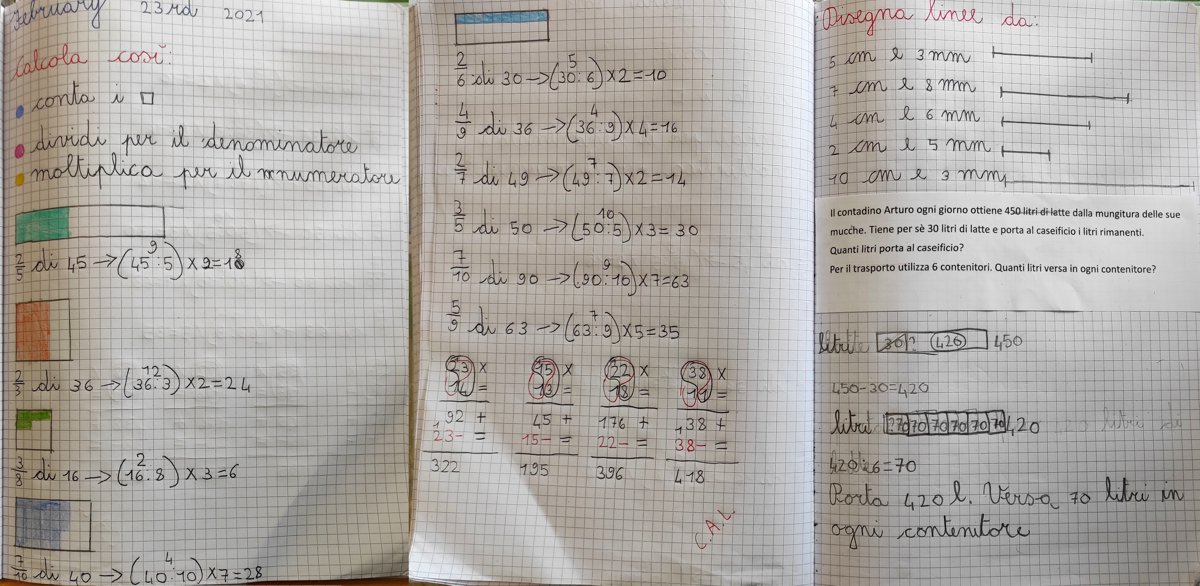 February 23rd 2021
Calcola così:
conta i □
dividi per il denominatore
moltiplica per il numeratore
2/5 di 45 → (45:5) 9 × 2 = 18
2/3 di 36 → (36:3) 12 × 2 = 24
3/8 di 16 → (16:8) 2 × 3 = 6
7/10 di 40 → (40:10) 4 × 7 = 28
2/6 di 30 → (30:6) 5 × 2 = 10
4/9 di 36 → (36:9) 4 × 4 = 16
2/7 di 49 → (49:7) 7 × 2 = 14
3/5 di 50 → (50:5) 10 × 3 = 30
7/10 di 90 → (90:10) 9 × 7 = 63
5/9 di 63 → (63:9) 7 × 5 = 35
23 × 15 × 22 × 38 ×
14 = 13 = 18 = 11 =
192 + 45 + 176 + 138 +
23- = 15- = 22- = 38- =
322 195 396 418
C.A.L.
Disegna linee da:
5 cm e 3 mm
7 cm e 8 mm
4 cm e 6 mm
2 cm e 5 mm
10 cm e 3 mm
Il contadino Arturo ogni giorno ottiene 450 litri di latte dalla mungitura delle sue
mucche. Tiene per sè 30 litri di latte e porta al caseificio i litri rimanenti.
Quanti litri porta al caseificio?
Per il trasporto utilizza 6 contenitori. Quanti litri versa in ogni contenitore?
litri 30 ? 420 450
450-30=420
litri ?70 70 70 70 70 70 420
420:6=70
Porta 420 l. Versa 70 litri in
ogni contenitore